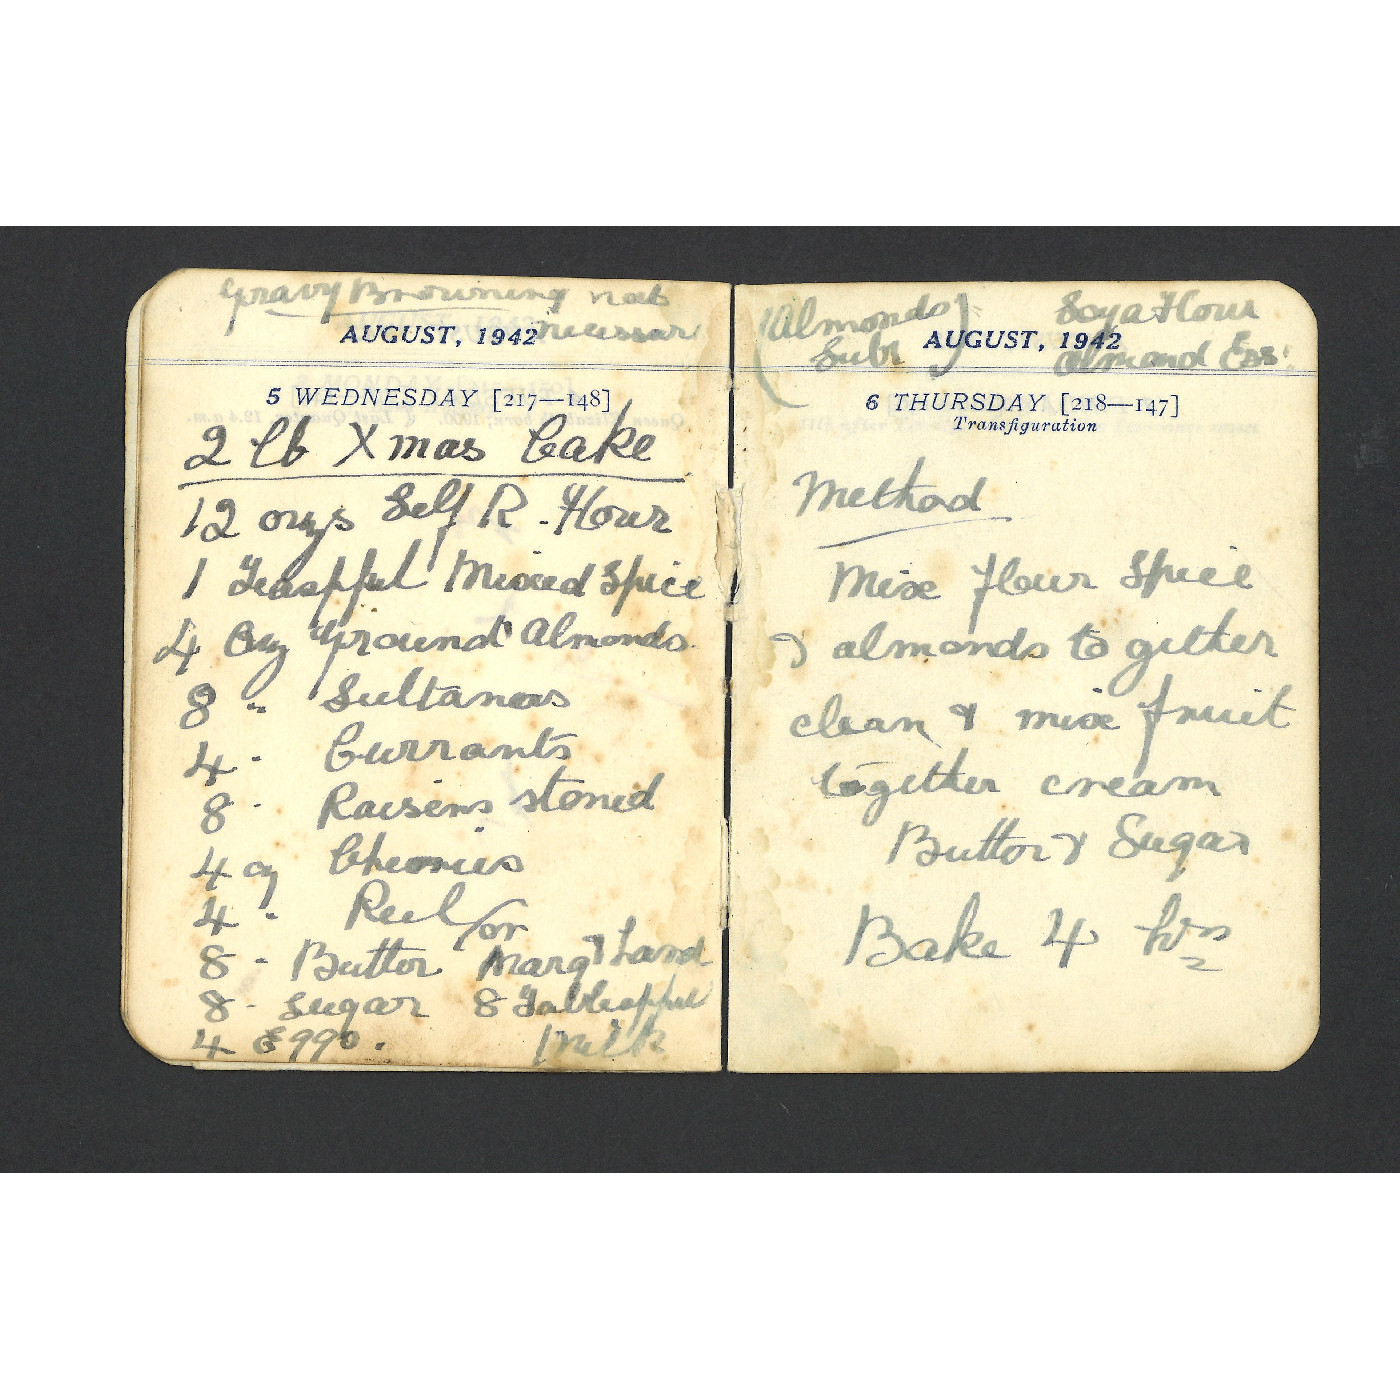 Gravy Browning not
necessary
AUGUST, 1942
5 WEDNESDAY [217—148]
2 lb Xmas Cake
12 ozs Self R. Flour
1 Teaspful Mixed Spice
4 Ozs Ground Almonds.
8 " Sultanas
4 - Currants
8 - Raisins stoned
4 oz Cherries
4 - Peel
or
8 - Butter Marg & Lard
8 - Sugar 8 Tablespful
4 Eggs. Milk
(Almonds Subs) Soya Flour
almond Ess.
AUGUST, 1942
6 THURSDAY [218—147]
Transfiguration
Method
Mix flour Spice
& almonds to gether
clean & mix fruit
together cream
Butter & Sugar
Bake 4 hrs